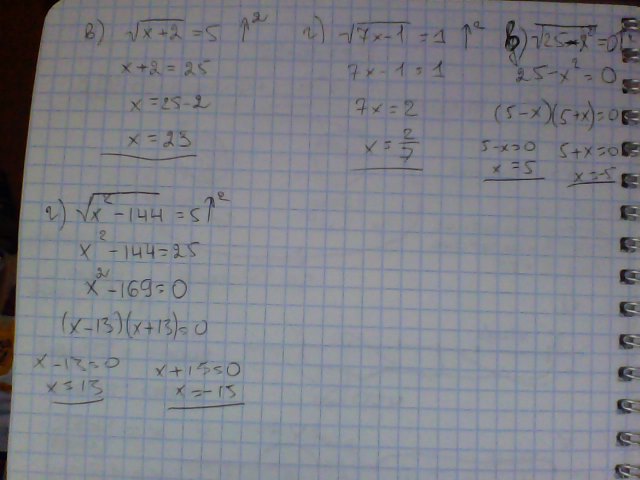 в) √(x+2) = 5 ↑²
x+2 = 25
x = 25-2
x = 23
г) √(7x-1) = 1 ↑²
7x-1 = 1
7x = 2
x = 2/7
в) √(25-x²) = 0
25-x² = 0
(5-x)(5+x) = 0
5-x=0 5+x=0
x=5 x=-5
г) √(x²-144) = 5 ↑²
x²-144 = 25
x²-169 = 0
(x-13)(x+13) = 0
x-13=0 x+13=0
x=13 x=-13